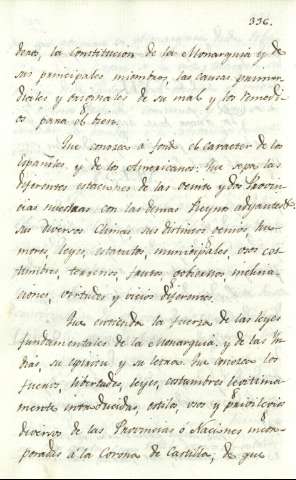 336.
deros, la Constitucion de la Monarquia y de
sus principales miembros, las causas primor
diales y originales de su mal y los remedi
os para el bien.
Que conosca á fondo el caracter de los
Españoles y de los Americanos: Que sepa las
diferentes estaciones de las veinte y dos Provin
cias nuestras con las demas Reynos adyacentes
sus diversos Climas sus distintos genios, hu
mores, leyes, estatutos, municipales, usos cos
tumbres, terrenos, frutos, gobiernos inclina
ciones, virtudes y vicios diferentes.
Que entienda la fuerza de las leyes
fundamentales de la Monarquia y de las In
dias, su espiritu y su letra. Que conosca los
fueros, libertades, leyes, costumbres legitima
mente introducidas, estilos, usos y privilegios
diversos de las Provincias ó Naciones incor
poradas á la Corona de Castilla, de que